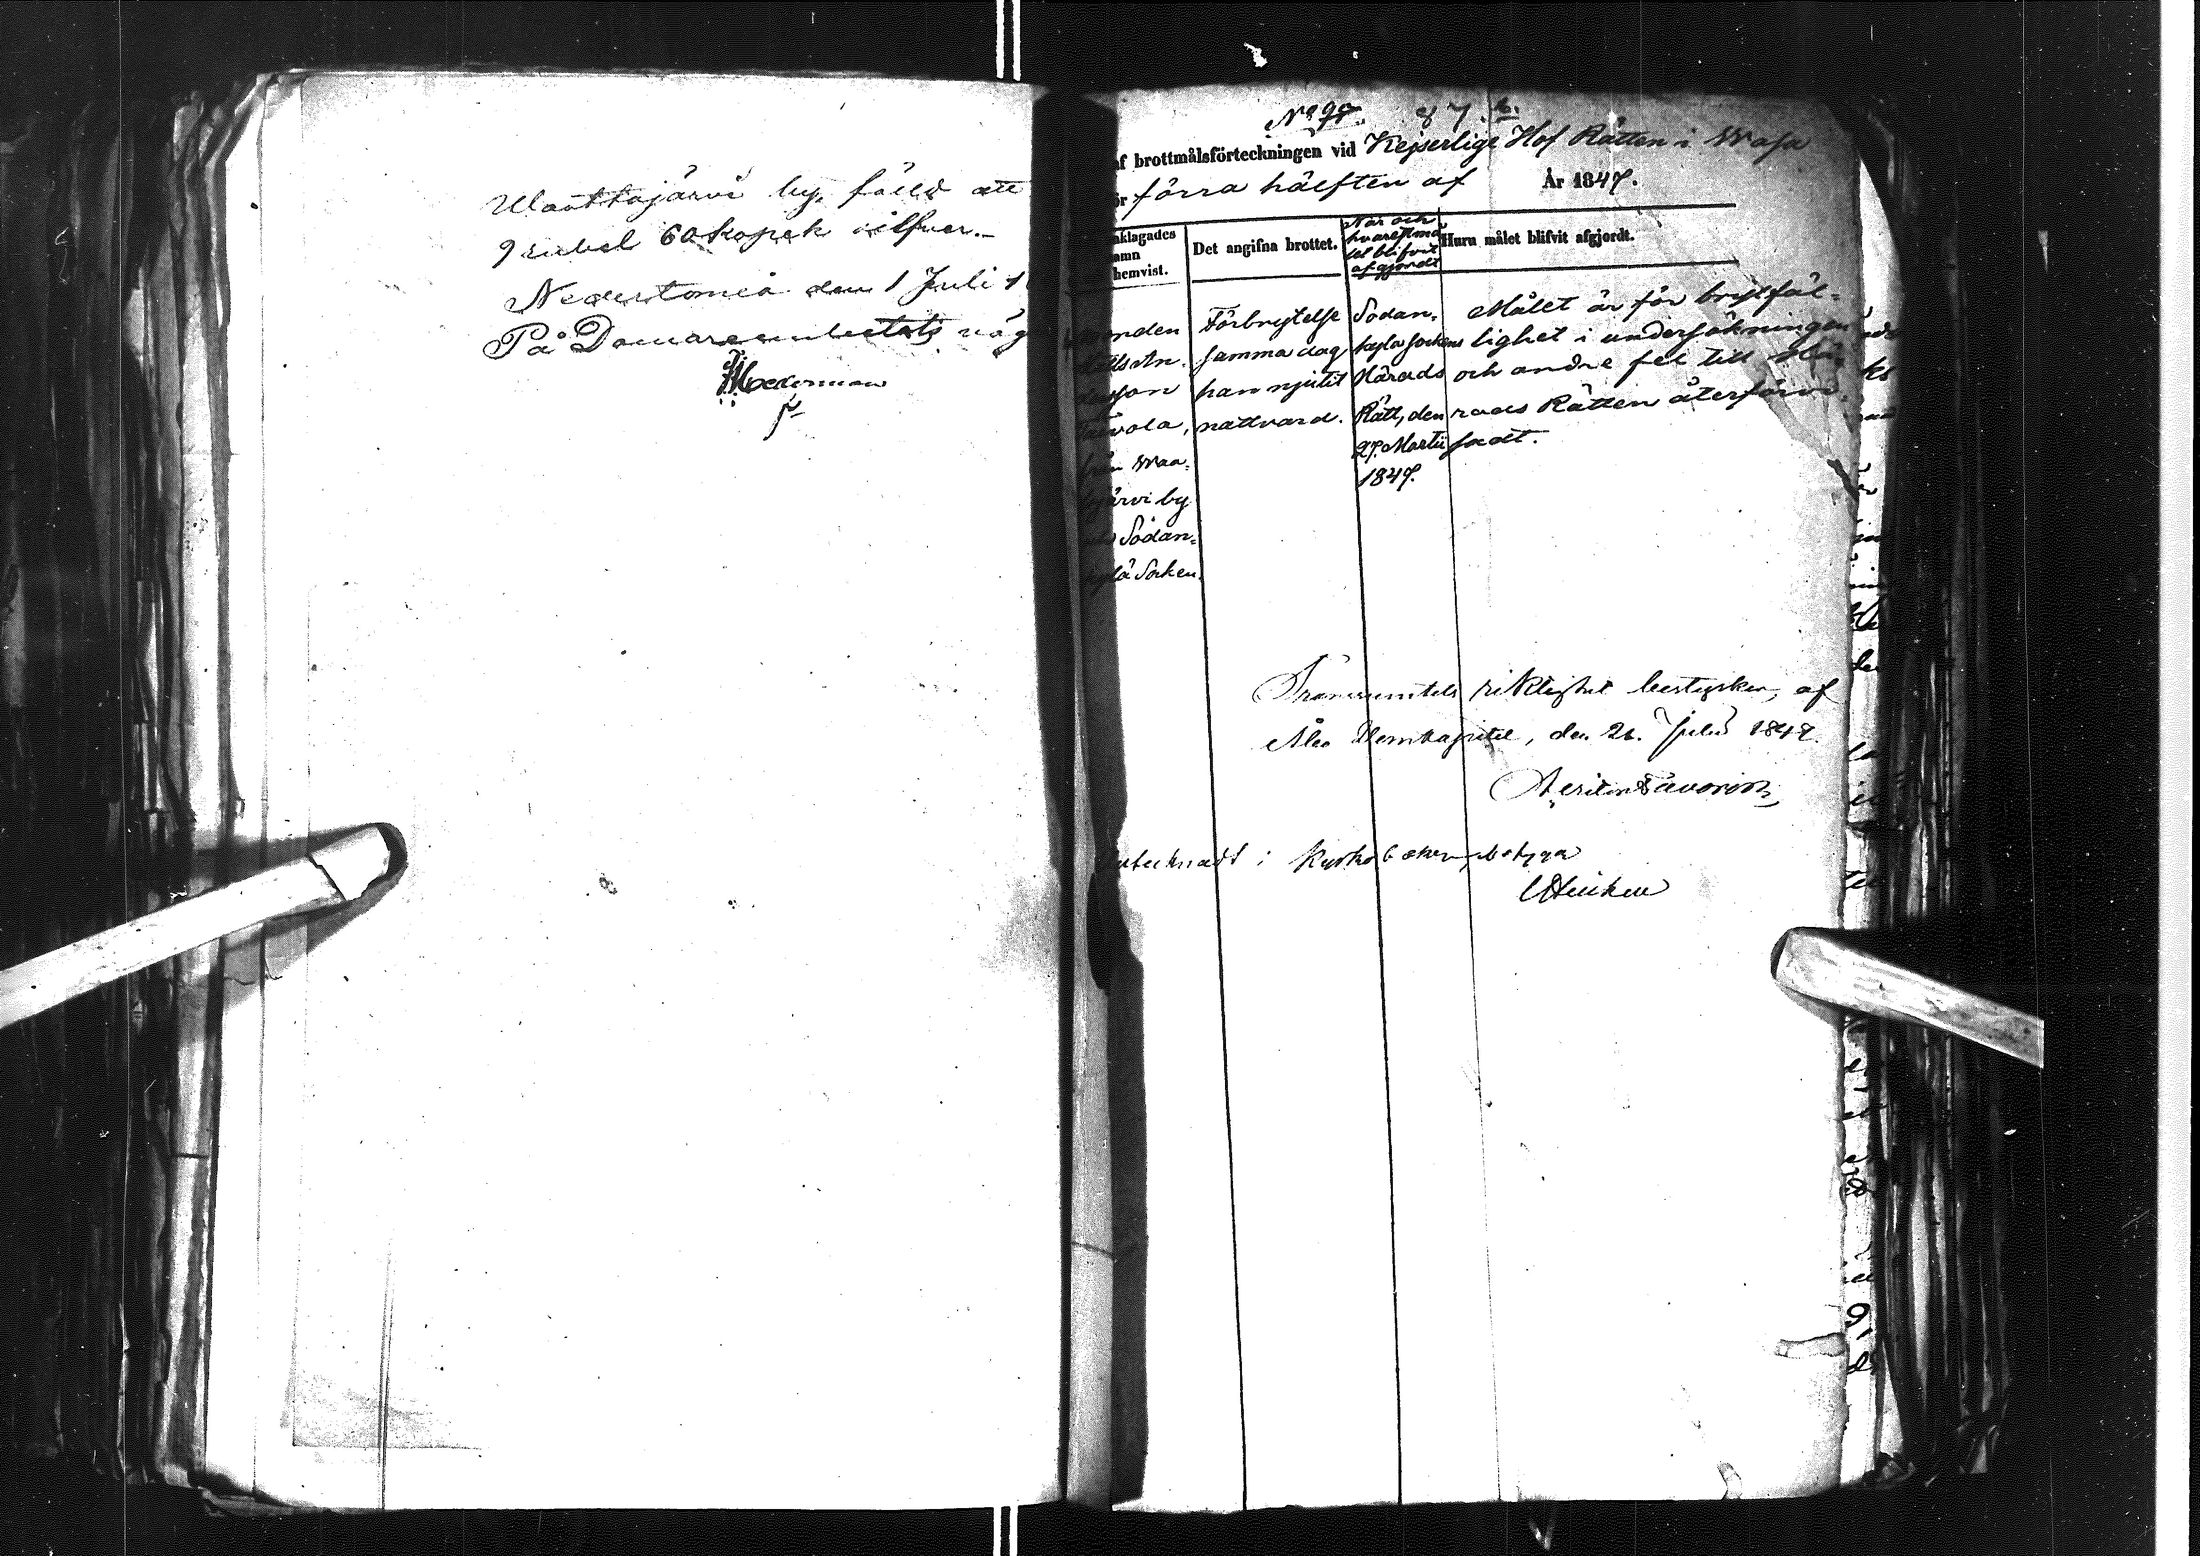 Waattojärvi by, fälld att
9 rubel 60 kopek silfver.
Nedertorneå den 1 Juli 1
På Domareembetets väg
No 98. 87. b.
af brottmålsförteckningen vid Kejserlige Hof Rätten i Wasa
ör förra hälften af År 1847.
nklagades
amn
hemvist.
Det angifna brottet.
När och
hvarest må
let blifvit
afgjordt
Huru målet blifvit afgjordt.
nden
lls An.
son
vola,
från Waa-
järvi by
Sodan-
kylä Socken.
Förbrytelse
samma dag
han njutit
nattvard.
Sodan-
kylä Sockens
Härads
Rätt, den
27. Martii
1847.
Målet är för bristfäl-
lighet i undersökningen
och andre fel till Hä-
rads Rätten återförvi-
sadt.
Transumtets riktighet bestyrkes, af
Åbo Domkapitel, den 21. Julii 1847.
antecknadt i Kyrkoboken, betygar